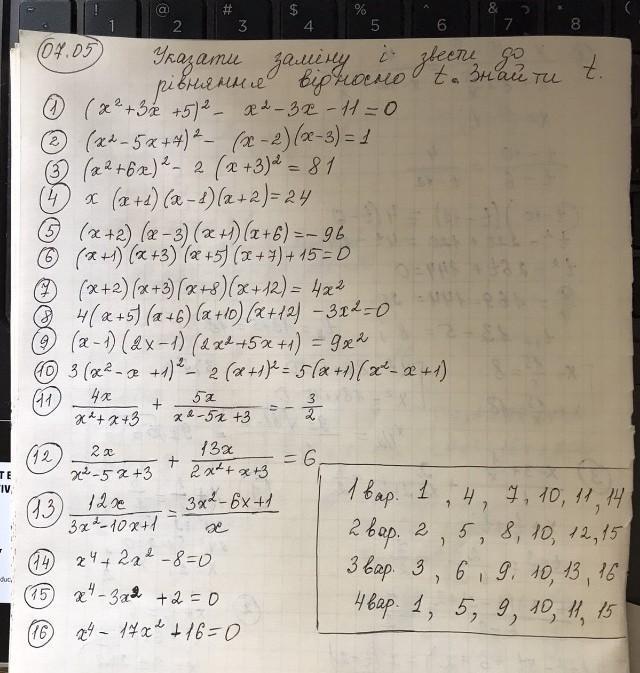 07.05 Указати заміну і звести до
рівняння відносно t. Знайти t.
1 (x²+3x+5)² - x² - 3x - 11 = 0
2 (x² - 5x + 7)² - (x-2)(x-3) = 1
3 (x² + 6x)² - 2 (x+3)² = 81
4 x (x+1)(x-1)(x+2) = 24
5 (x+2)(x-3)(x+1)(x+6) = -96
6 (x+1)(x+3)(x+5)(x+7)+15=0
7 (x+2)(x+3)(x+8)(x+12) = 4x²
8 4(x+5)(x+6)(x+10)(x+12) - 3x² = 0
9 (x-1)(2x-1)(2x²+5x+1) = 9x²
10 3(x²-x+1)² - 2(x+1)² = 5(x+1)(x²-x+1)
11 4x/(x²+x+3) + 5x/(x²-5x+3) = -3/2
12 2x/(x²-5x+3) + 13x/(2x²+x+3) = 6
13 12x/(3x²-10x+1) = (3x²-6x+1)/x
14 x⁴ + 2x² - 8 = 0
15 x⁴ - 3x² + 2 = 0
16 x⁴ - 17x² + 16 = 0
1 вар. 1, 4, 7, 10, 11, 14
2 вар. 2, 5, 8, 10, 12, 15
3 вар. 3, 6, 9, 10, 13, 16
4 вар. 1, 5, 9, 10, 11, 15